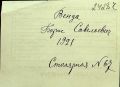 Венда
Борис Савельевич
1921
Столярная № 62